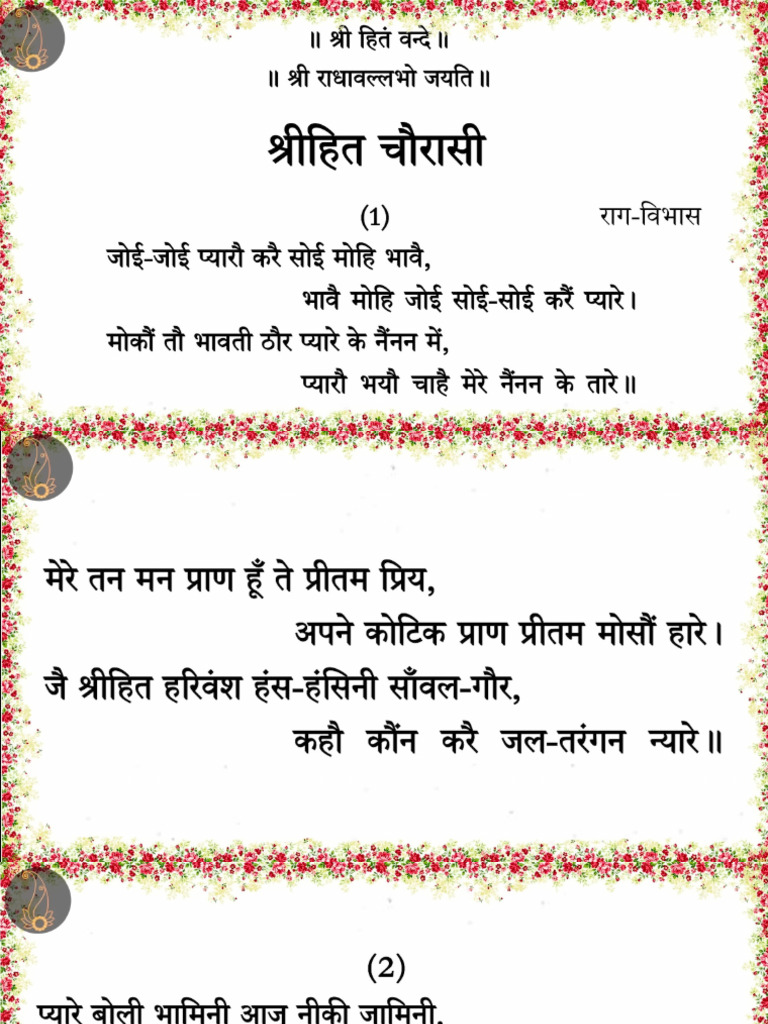 ॥ श्री हितं वन्दे ॥
॥ श्री राधावल्लभो जयति ॥
श्रीहित चौरासी
(1) राग-विभास
जोई-जोई प्यारौ करै सोई मोहि भावै,
भावै मोहि जोई सोई-सोई करैं प्यारे।
मोकौं तौ भावती ठौर प्यारे के नैंनन में,
प्यारौ भयौ चाहै मेरे नैंनन के तारे॥
मेरे तन मन प्राण हूँ ते प्रीतम प्रिय,
अपने कोटिक प्राण प्रीतम मोसौं हारे।
जै श्रीहित हरिवंश हंस-हंसिनी साँवल-गौर,
कहौ कौंन करै जल-तरंगन न्यारे॥
(2)
प्यारे बोली भामिनी आजु नीकी जामिनी,